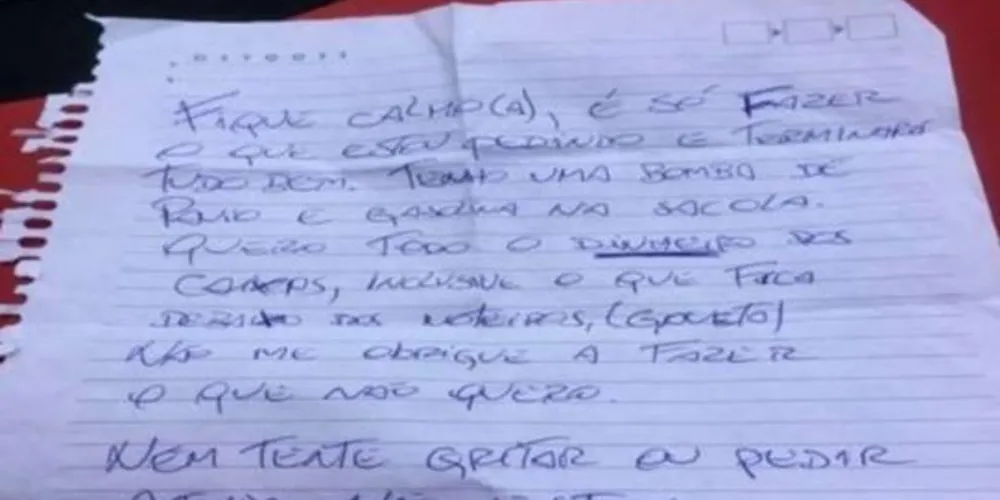 FIQUE CALMO(A), É SÓ FAZER
O QUE ESTOU PEDINDO E TERMINARÁ
TUDO BEM. TENHO UMA BOMBA DE
E GASOLINA NA SACOLA.
QUERO TODO O DINHEIRO DOS
CAIXAS, INCLUSIVE O QUE FICA
DEBAIXO DOS NOTEIROS, (GAVETA)
NÃO ME OBRIGUE A FAZER
O QUE NÃO QUERO.
NEM TENTE GRITAR OU PEDIR